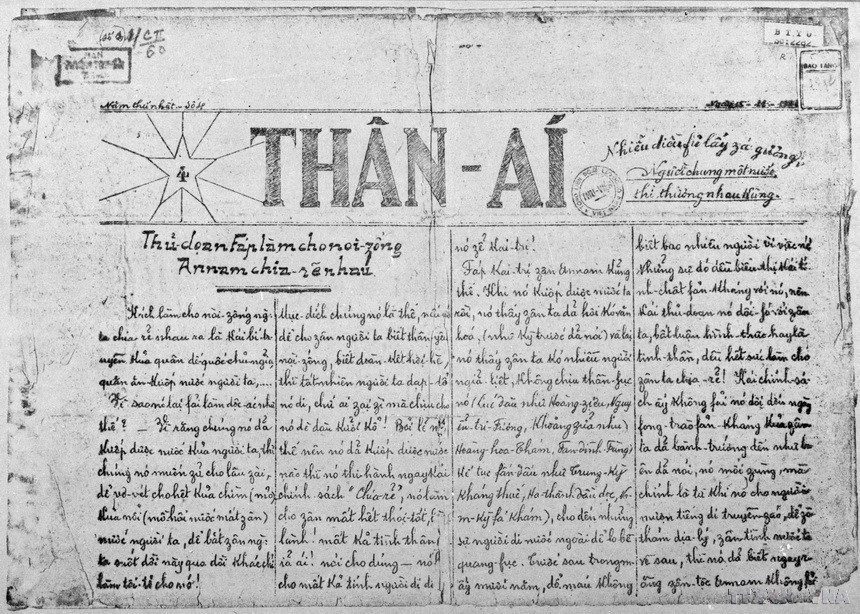 Năm thứ nhất - Số 4
4
THÂN-ÁI
Nhiễu điều fủ lấy zá gương,
Người chung một nước
thì thương nhau kùng.
Thủ-đoạn Fáp làm cho nòi-zống
Annam chia-rẽ nhau.
Kích làm cho nòi-zống ng-
ta chia rẽ nhau ra là kái bí t-
uyền kủa quân đế quốc chủ nghĩa
quân ăn-kướp nước người ta,...
Vì sao nó lại fải làm độc-ác như
thế? — Vì rằng chúng nó đã
kướp được nước kủa người ta, thì
chúng nó muốn zữ cho lâu zài,
để vơ-vét cho hết kủa chìm (mỏ)
kủa nổi (mồ hôi nước mắt zân)
nước người ta, để bắt zân ng-
ta suốt đời này qua đời khác chỉ
làm tôi-tớ cho nó!
mục-đích chúng nó là thế, nếu
để cho zân người ta biết thân-yêu
nòi-zống, biết đoàn-kết hợp-
thì tất nhiên người ta đạp-
nó đi, chứ ai zại zì mà chịu cho
nó đè đầu kưỡi kổ! Bởi lẽ
thế nên nó đã kướp được nước
nào thì nó thi-hành ngay kái
chính-sách "Chia-rẽ", nó làm
cho zân mất hết thói-tốt,
lành! mất kả tinh thân
ái! nói cho đúng — nó
cho mất kả tính người đi để
nó zễ kai-trị!
Fáp kai-trị zân Annam kũng
thế. Khi nó kướp được nước ta
rồi, nó thấy zân ta đã hơi kó văn
hoá, (như kỳ trước đã nói) và lại
nó thấy zân ta kó nhiều người
nghĩa-liệt, không chịu thần-fục
nó (lúc đầu như Hoàng-ziệu, Nguy
ễn-tri-Fương, Khoảng zữa như
Hoàng-hoa-Thám, Fan-đình-Fùng
Kế tục fần đầu như Trung-Kỳ
Kháng thuế, Hà-thành đầu độc,
m-Kỳ fá khám), cho đến những
sự người đi nước ngoài để lo bề
quang-fục. Trước sau trong m-
ấy mươi năm, đổ máu không
biết bao nhiêu người vì việc nó
những sự đó đều biểu-thị kái tí-
nh-chất fản-kháng với nó, nên
kái thủ-đoạn nó đối-fó với zân
ta, bất luận hình-thức hay là
tinh-thần, đều hết sức làm cho
zân ta chia-rẽ! Kái chính-sá-
ch ấy không fải nó đợi đến ngày
fong-trào fản-kháng kủa zân
ta đã bành-trướng đến như
đã nói, nó mới zùng, mà
chính là từ khi nó cho người
mượn tiếng đi truyền-záo, để zò
thám địa-lý, zân tình nước ta
về sau, thì nó đã biết ngay r-
ằng zân-tộc Annam không fải